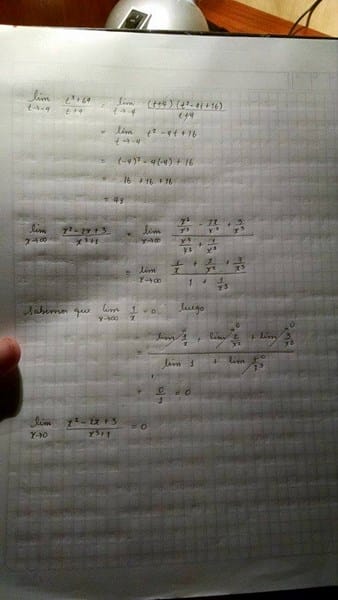 lim t→-4 t³+64 / t+4 = lim t→-4 (t+4)(t²-4t+16) / t+4
= lim t→-4 t²-4t+16
= (-4)²-4(-4)+16
= 16+16+16
= 48
lim x→∞ x²-2x+3 / x³+1 = lim x→∞ x²/x³ - 2x/x³ + 3/x³ / x³/x³ + 1/x³
= lim x→∞ 1/x + 2/x² + 3/x³ / 1 + 1/x³
Sabemos que lim x→∞ 1/x = 0. luego
= lim 1/x 0 + lim 2/x² 0 + lim 3/x³ 0 / lim 1 + lim 1/x³ 0
= 0/1 = 0
lim x→0 x²-2x+3 / x³+1 = 0